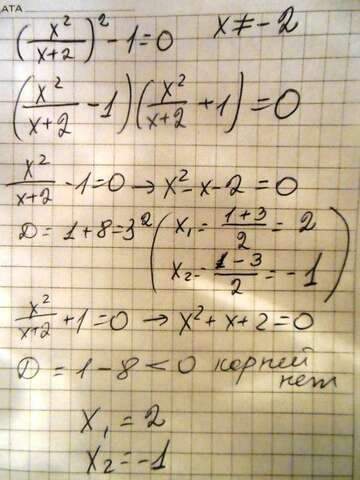 АТА
(x²/(x+2))² - 1 = 0   x ≠ -2
(x²/(x+2) - 1)(x²/(x+2) + 1) = 0
x²/(x+2) - 1 = 0 → x² - x - 2 = 0
D = 1 + 8 = 3² (x₁ = (1+3)/2 = 2
x₂ = (1-3)/2 = -1)
x²/(x+2) + 1 = 0 → x² + x + 2 = 0
D = 1 - 8 < 0 корней
нет
x₁ = 2
x₂ = -1